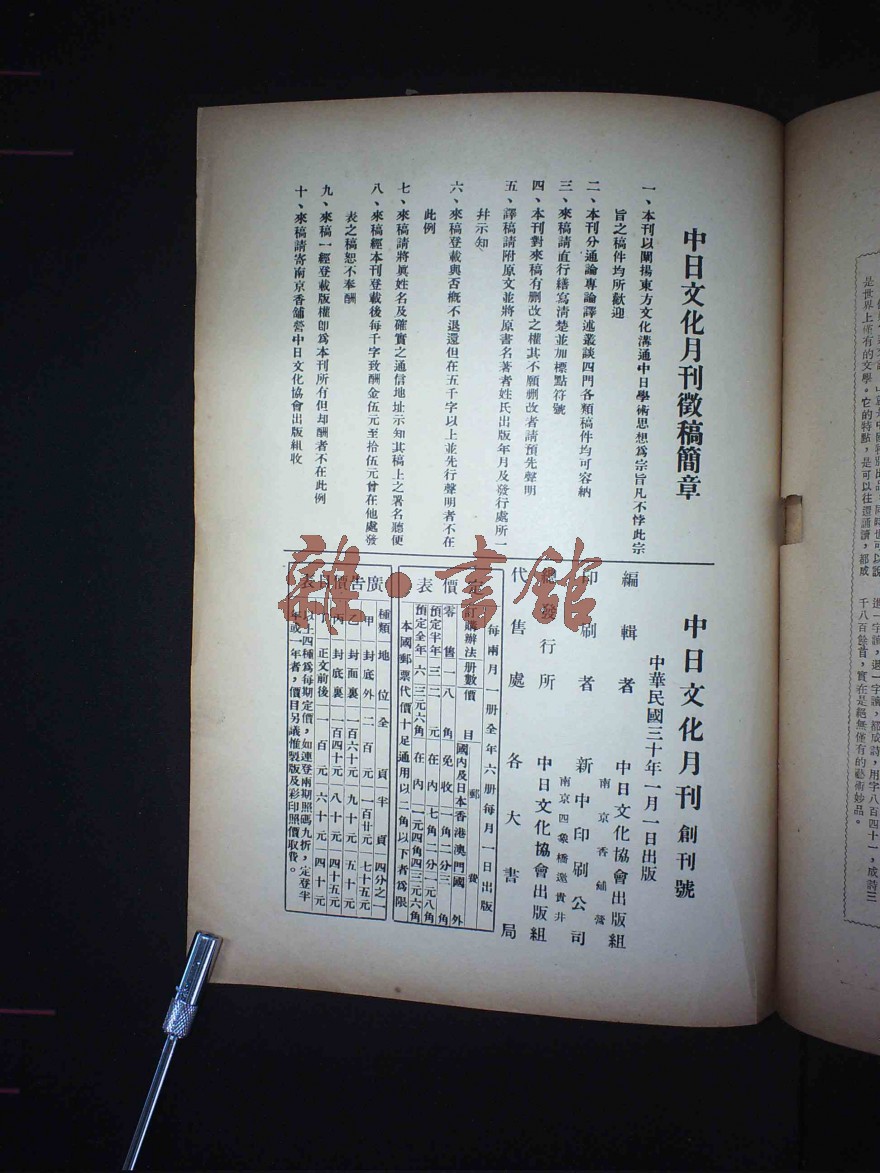 中日文化月刊徵稿簡章
一、本刊以闡揚東方文化溝通中日學術思想爲宗旨凡不悖此宗
旨之稿件均所歡迎
二、本刊分通論專論譯述叢談四門各類稿件均可容納
三、來稿請直行繕寫清楚並加標點符號
四、本刊對來稿有删改之權其不願删改者請預先聲明
五、譯稿請附原文並將原書名著者姓氏出版年月及發行處所一
幷示知
六、來稿登載與否概不退還但在五千字以上並先行聲明者不在
此例
七、來稿請將眞姓名及確實之通信地址示知其稿上之署名聽便
八、來稿經本刊登載後每千字致酬金伍元至拾伍元曾在他處發
表之稿恕不奉酬
九、來稿一經登載版權卽爲本刊所有但却酬者不在此例
十、來稿請寄南京香舖營中日文化協會出版組收
中日文化月刊 創刊號
中華民國三十年一月一日出版
編輯者 中日文化協會出版組
南京香舖營
印刷者 新中印刷公司
南京四象橋邀貴井
發行所 中日文化協會出版組
代售處 各大書局
定價表
每兩月一册全年六册每月一日出版
訂購辦法 册數 價目 郵費
國內及日本 香港澳門 國外
零售 一 八角 免收 一角二分 三角
預定半年 三 二元 在內 七角二分 二元八角
預定全年 六 三元六角 在內 一元四角四 三元六角
本國郵票代價十足通用以二角以下者爲限
廣告價目表
種類 地位 全頁 半頁 四分之一
甲 封底外 二百元 一百廿元 七十五元
乙 封面裏 一百六十元 九十元 五十元
丙 封底裏 一百四十元 八十元 四十五元
丁 正文前後 一百元 六十元 四十元
以上四種爲每期定價，如連登兩期照碼九折，定登半
年或一年者，價目另議惟製版及彩印照價取費。
是世界上僅有的文學。它的特點，是可以往還誦讀，都成
進一字讀，退一字讀，都成詩，用字八百四十一，成詩三
千八百餘首，實在是絕無僅有的藝術妙品。
雜·書館